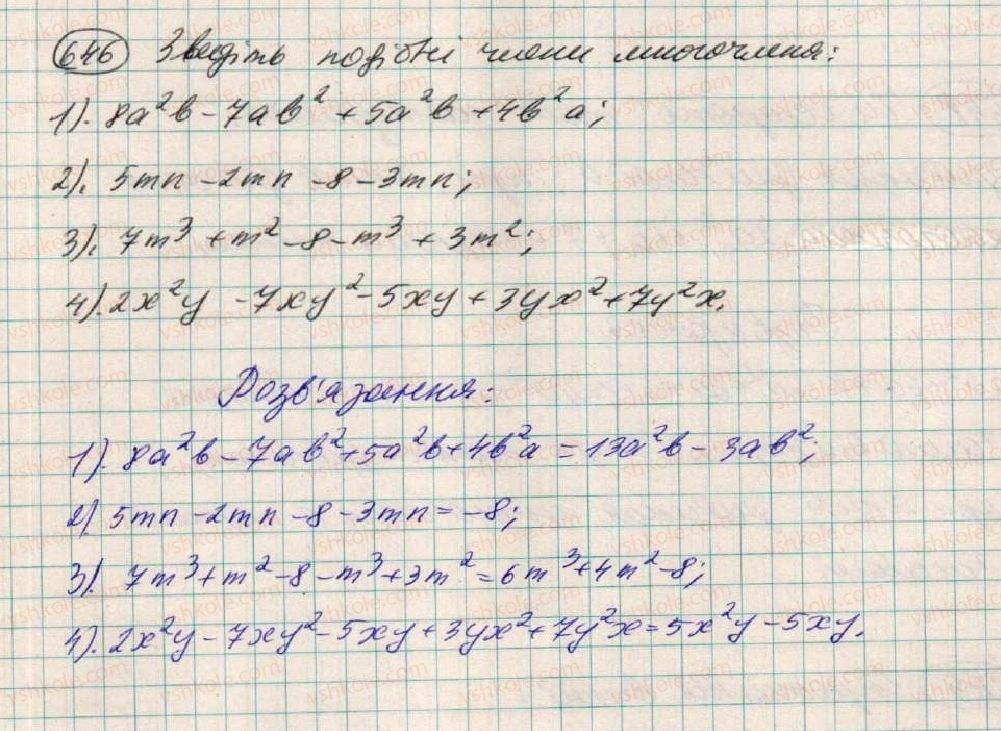 646 Зведіть подібні члени многочлена:
1). 8a²b - 7ab² + 5a²b + 4b²a;
2). 5mn - 2mn - 8 - 3mn;
3). 7m³ + m² - 8 - m³ + 3m²;
4). 2x²y - 7xy² - 5xy + 3yx² + 7y²x.
Розв'язання:
1). 8a²b - 7ab² + 5a²b + 4b²a = 13a²b - 3ab²;
2). 5mn - 2mn - 8 - 3mn = -8;
3). 7m³ + m² - 8 - m³ + 3m² = 6m³ + 4m² - 8;
4). 2x²y - 7xy² - 5xy + 3yx² + 7y²x = 5x²y - 5xy.